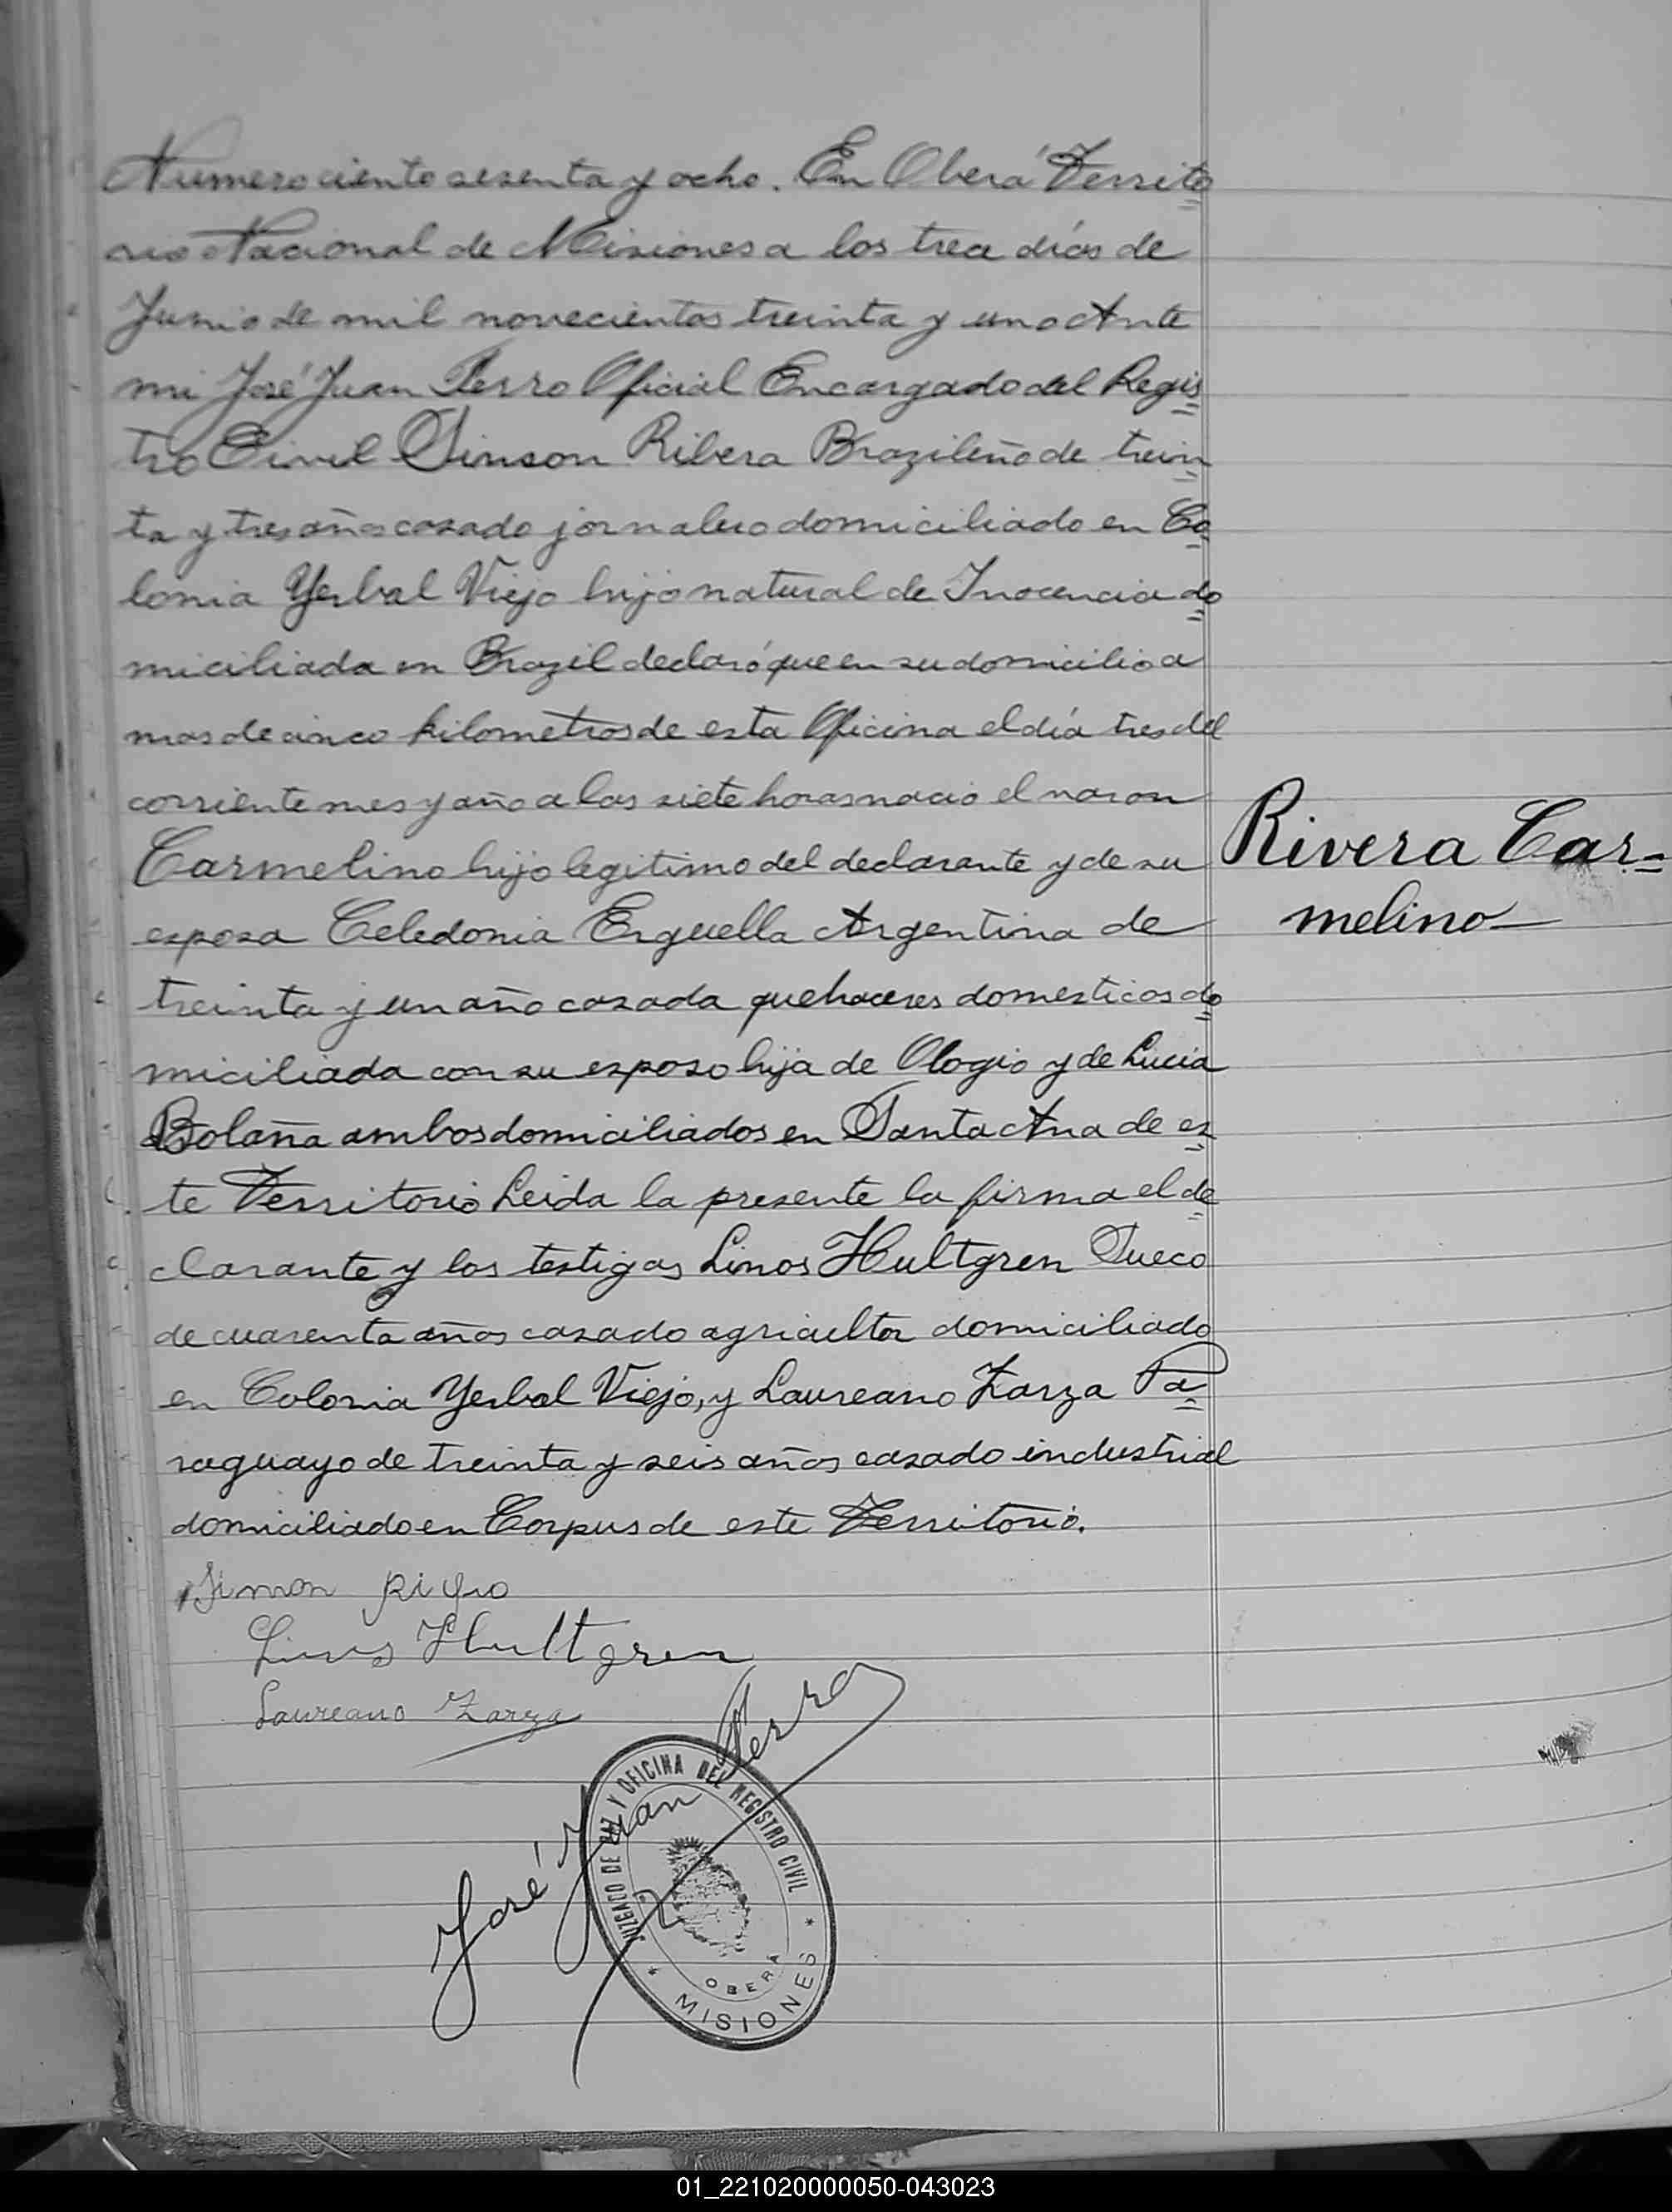 Numero ciento sesenta y ocho. En Oberá Territo
rio Nacional de Misiones a los trece días de
Junio de mil novecientos treinta y uno Ante
mi José Juan Ferro Oficial Encargado del Regis
tro Civil Simson Ribera Brazileño de trein
ta y tres años casado jornalero domiciliado en Co
lonia Yerbal Viejo hijo natural de Inocencia do
miciliada en Brazil declaró que en su domicilio a
mas de cinco kilometros de esta Oficina el día tres del
corriente mes y año a las siete horas nacio el varon
Carmelino hijo legitimo del declarante y de su
Rivera Car-
melino
esposa Celedonia Erguella Argentina de
treinta y un año casada quehaceres domesticos do
miciliada con su esposo hija de Ologio y de Lucia
Bolaña ambos domiciliados en Santa Ana de es
te Territorio Leida la presente la firma el de
clarante y los testigos Linos Hultgren Sueco
de cuarenta años casado agricultor domiciliado
en Colonia Yerbal Viejo, y Laureano Zarza Pa
raguayo de treinta y seis años casado industrial
domiciliado en Corpus de este Territorio.
Simon
Linus Hultgren
Laureano Zarza
José Juan Ferro
JUZGADO DE PAZ Y OFICINA DEL REGISTRO CIVIL
OBERA
* MISIONES *
01_221020000050-043023